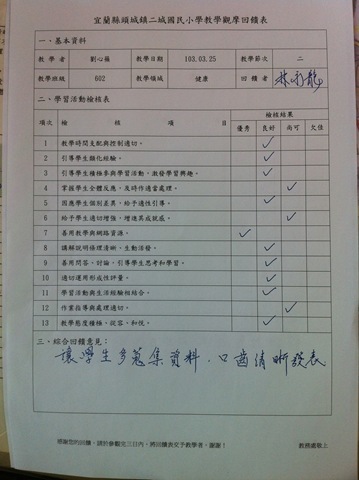 宜蘭縣頭城鎮二城國民小學教學觀摩回饋表
一、基本資料
教學者 劉心蘋 教學日期 103.03.25 教學節次 二
教學班級 602 教學領域 健康 回饋者
二、學習活動檢核表
項次 檢核項目 檢核結果
優秀 良好 尚可 欠佳
1 教學時間支配與控制適切。 ✓
2 引導學生類化經驗。 ✓
3 引導學生積極參與學習活動，激發學習興趣。 ✓
4 掌握學生全體反應，及時作適當處理。 ✓
5 因應學生個別差異，給予適性引導。 ✓
6 給予學生適切增強，增進其成就感。 ✓
7 善用教學與網路資源。 ✓
8 講解說明條理清晰、生動活發。 ✓
9 善用問答、討論，引導學生思考和學習。 ✓
10 適切運用形成性評量。 ✓
11 學習活動與生活經驗相結合。 ✓
12 作業指導與處理適切。 ✓
13 教學態度積極、從容、和悅。 ✓
三、綜合回饋意見：
讓學生多蒐集資料，口齒清晰發表
感謝您的回饋，請於參觀完三日內，將回饋表交予教學者，謝謝！ 教務處敬上